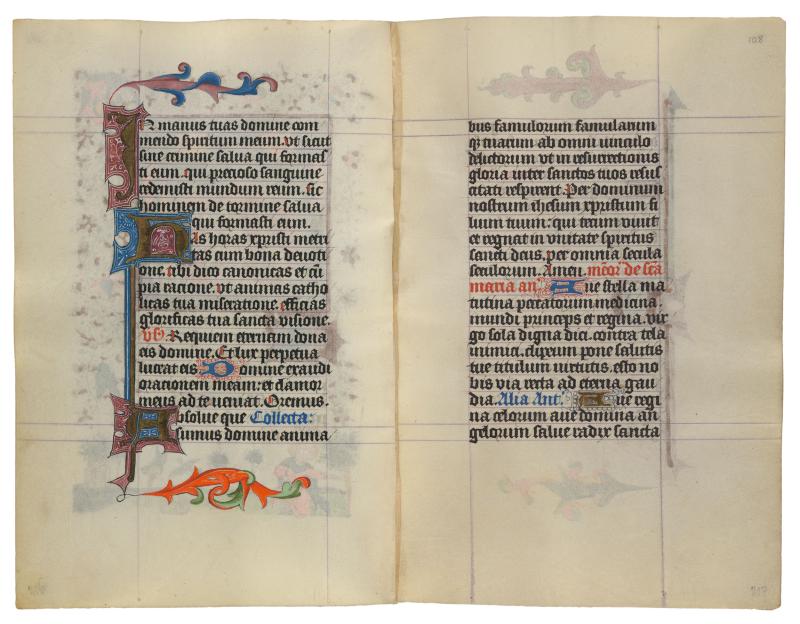 In manus tuas domine com
mendo spiritum meum. vt sicut
sine crimine salua qui formas
ti eum. qui precioso sanguine
redemisti mundum reum. sic
hominem de tormine salua
qui formasti eum.
Has horas xpristi metri
tas cum bona deuoti
one. tibi dico canonicas et cū
pia racione. vt animas catho
licas tua miseratione. efficias
glorificas tua sancta visione.
Requiem eternam dona
eis domine. Et lux perpetua
luceat eis Domine exaudi
orationem meam: et clamor
meus ad te veniat. Oremus.
Absolue que Collecta:
sumus domine anima
108
bus famulorum famularum
qz tuarum ab omni uinculo
delictorum vt in resurrectionis
gloria inter sanctos tuos resus
citati respirent. Per dominum
nostrum ihesum xpristum fi
lium tuum: qui tecum viuit
et regnat in vnitate spiritus
sancti deus. per omnia secula
seculorum. Amen. de scā
maria an Aue stella ma
tutina peccatorum medicina.
mundi princeps et regina. vir
go sola digna dici. contra tela
inimici. clipeum pone salutis
tue titulum virtutis. esto no
bis via recta ad eterna gau
dia. Alia Ant. Aue regi
na celorum aue domina an
gelorum salue radix sancta